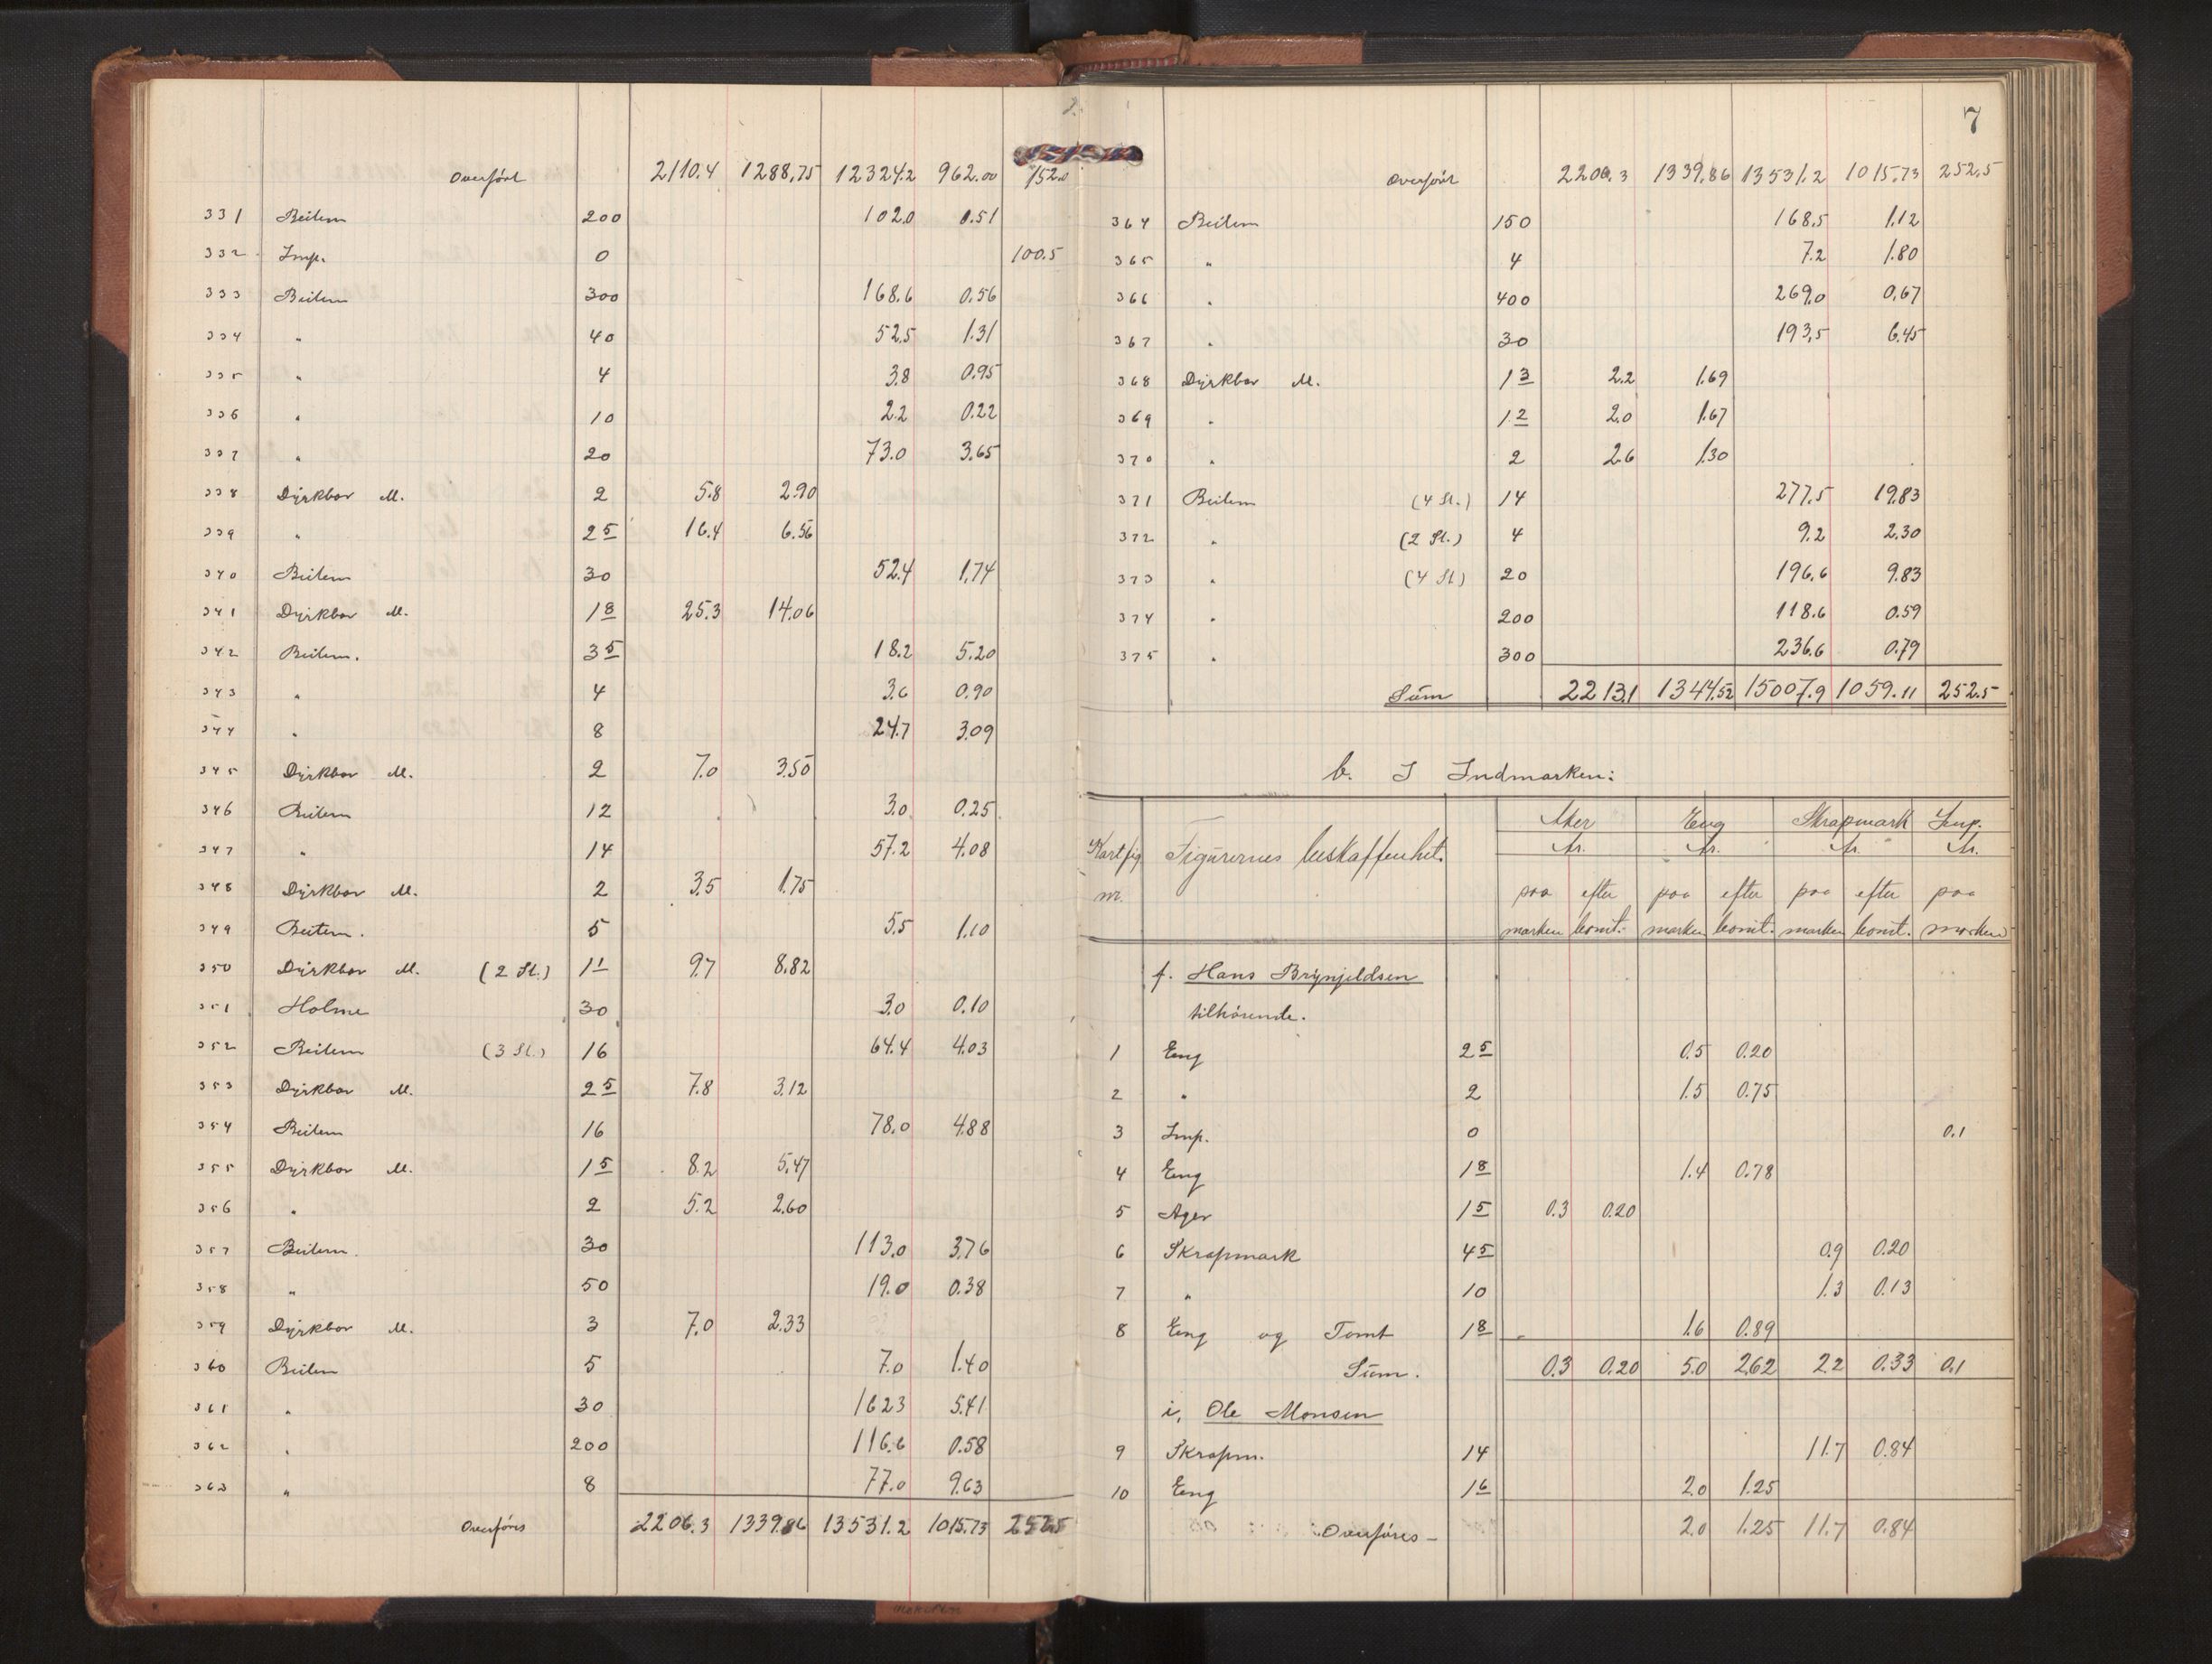 Overført 2110.4 1288.75 12324.2 962.00 152.0
331 Beitem 200 102.0 0.51
332 Imp. 0 100.5
333 Beitem 300 168.6 0.56
334 " 40 52.5 1.31
335 " 4 3.8 0.95
336 " 10 2.2 0.22
337 " 20 73.0 3.65
338 Dyrkbar M. 2 5.8 2.90
339 " 2 5 16.4 6.56
340 Beitem 30 52.4 1.74
341 Dyrkbar M. 1 8 25.3 14.06
342 Beitem. 3 5 18.2 5.20
343 " 4 3.6 0.90
344 " 8 24.7 3.09
345 Dyrkbar M. 2 7.0 3.50
346 Beitem 12 3.0 0.25
347 " 14 57.2 4.08
348 Dyrkbar M. 2 3.5 1.75
349 Beitem. 5 5.5 1.10
350 Dyrkbar M. (2 St.) 1 1 9.7 8.82
351 Holme 30 3.0 0.10
352 Beitem (3 St.) 16 64.4 4.03
353 Dyrkbar M. 2 5 7.8 3.12
354 Beitem 16 78.0 4.88
355 Dyrkbar M. 1 5 8.2 5.47
356 " 2 5.2 2.60
357 Beitem. 30 113.0 3.76
358 " 50 19.0 0.38
359 Dyrkbar M. 3 7.0 2.33
360 Beitem 5 7.0 1.40
361 " 30 162.3 5.41
362 " 200 116.6 0.58
363 " 8 77.0 9.63
Overføres 2206.3 1339.86 13531.2 1015.73 252.5
7
Overført 2206.3 1339.86 13531.2 1015.73 252.5
364 Beitem 150 168.5 1.12
365 " 4 7.2 1.80
366 " 400 269.0 0.67
367 " 30 193.5 6.45
368 Dyrkbar M. 1 3 2.2 1.69
369 " 1 2 2.0 1.67
370 " 2 2.6 1.30
371 Beitem (4 St.) 14 277.5 19.83
372 " (2 St.) 4 9.2 2.30
373 " (4 St) 20 196.6 9.83
374 " 200 118.6 0.59
375 " 300 236.6 0.79
Sum 2213.1 1344.52 15007.9 1059.11 252.5
b. I Indmarken:
Kartfig. nr. Figurernes beskaffenhet. Aker Eng Skrapmark Imp.
Ar. Ar. Ar. Ar.
paa efter paa efter paa efter paa
marken bonit. marken bonit. marken bonit. marken
f. Hans Brynjeldsen
tilhørende.
1 Eng 2 5 0.5 0.20
2 " 2 1.5 0.75
3 Imp. 0 0.1
4 Eng 1 8 1.4 0.78
5 Ager 1 5 0.3 0.20
6 Skrapmark 4 5 0.9 0.20
7 " 10 1.3 0.13
8 Eng og Tomt 1 8 1.6 0.89
Sum. 0.3 0.20 5.0 2.62 2.2 0.33 0.1
i, Ole Monsen
9 Skrapm. 14 11.7 0.84
10 Eng 1 6 2.0 1.25
Overføres - 2.0 1.25 11.7 0.84